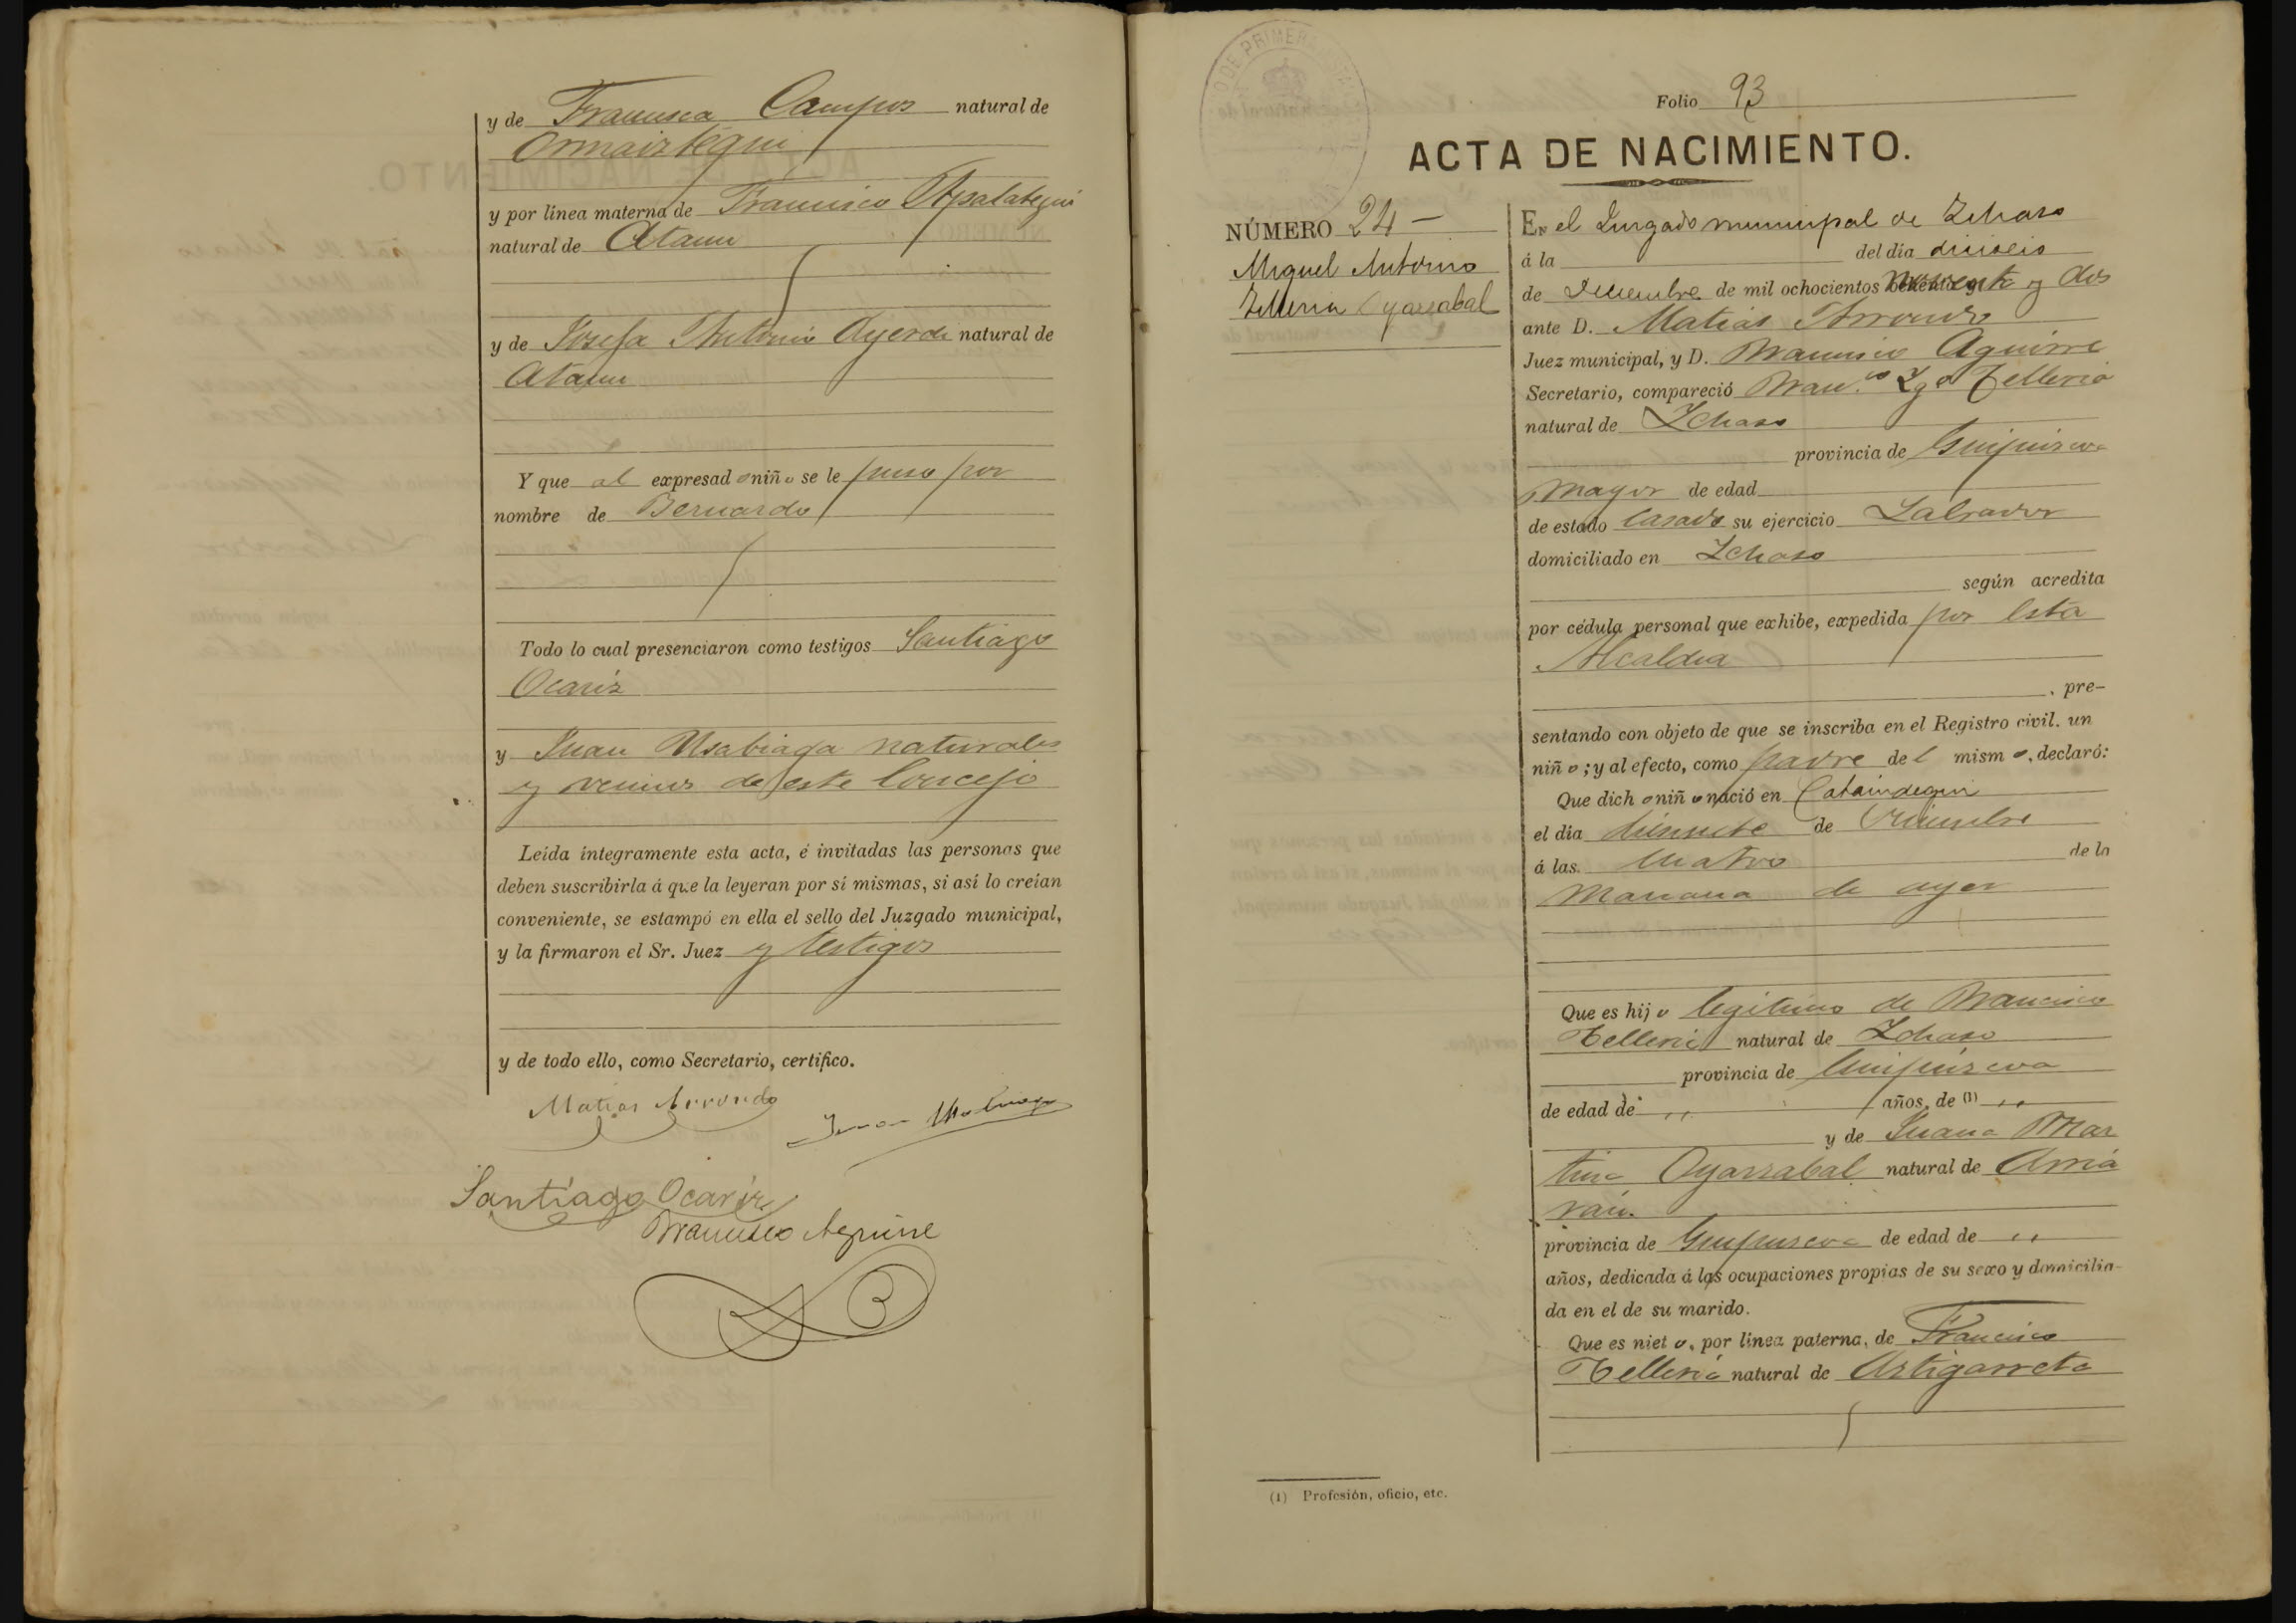 y de Francisca Campos natural de
Ormaiztegui
y por línea materna de Francisco Apalategui
natural de Ataun
y de Josefa Antonia Ayerdi natural de
Ataun
Y que al expresado niño se le puso por
nombre de Bernardo
Todo lo cual presenciaron como testigos Santiago
Ocariz
y Juan Usabiaga naturales
y vecinos de este Concejo
Leída íntegramente esta acta, é invitadas las personas que
deben suscribirla á que la leyeran por sí mismas, si así lo creían
conveniente, se estampó en ella el sello del Juzgado municipal,
y la firmaron el Sr. Juez y testigos
y de todo ello, como Secretario, certifico.
Matias Arrondo
Juan
Santiago Ocariz
Francisco Aguirre
Folio 93
ACTA DE NACIMIENTO.
NÚMERO 24 -
Miguel Antonio
Telleria Oyarzabal
En el Juzgado municipal de Ichaso
á la del día
de Diciembre de mil ochocientos noventa y dos
ante D. Matias Arrondo
Juez municipal, y D. Francisco Aguirre
Secretario, compareció Fran.co Ygo Telleria
natural de Ichaso
provincia de Guipuzcoa
mayor de edad
de estado casado su ejercicio Labrador
domiciliado en Ichaso
según acredita
por cédula personal que exhibe, expedida por esta
Alcaldia
, pre-
sentando con objeto de que se inscriba en el Registro civil. un
niño; y al efecto, como padre del mismo, declaró:
Que dicho niño nació en
el día de Diciembre
á las cuatro de la
mañana de ayer
Que es hijo legitimo de Francisco
Telleria natural de Ichaso
provincia de Guipuzcoa
de edad de " años, de (1) "
y de Juana Mar
tina Oyarzabal natural de Arria
ran.
provincia de Guipuzcoa de edad de "
años, dedicada á las ocupaciones propias de su sexo y domicilia-
da en el de su marido.
Que es nieto, por línea paterna, de Francisco
Telleria natural de Astigarreta
(1) Profesión, oficio, etc.